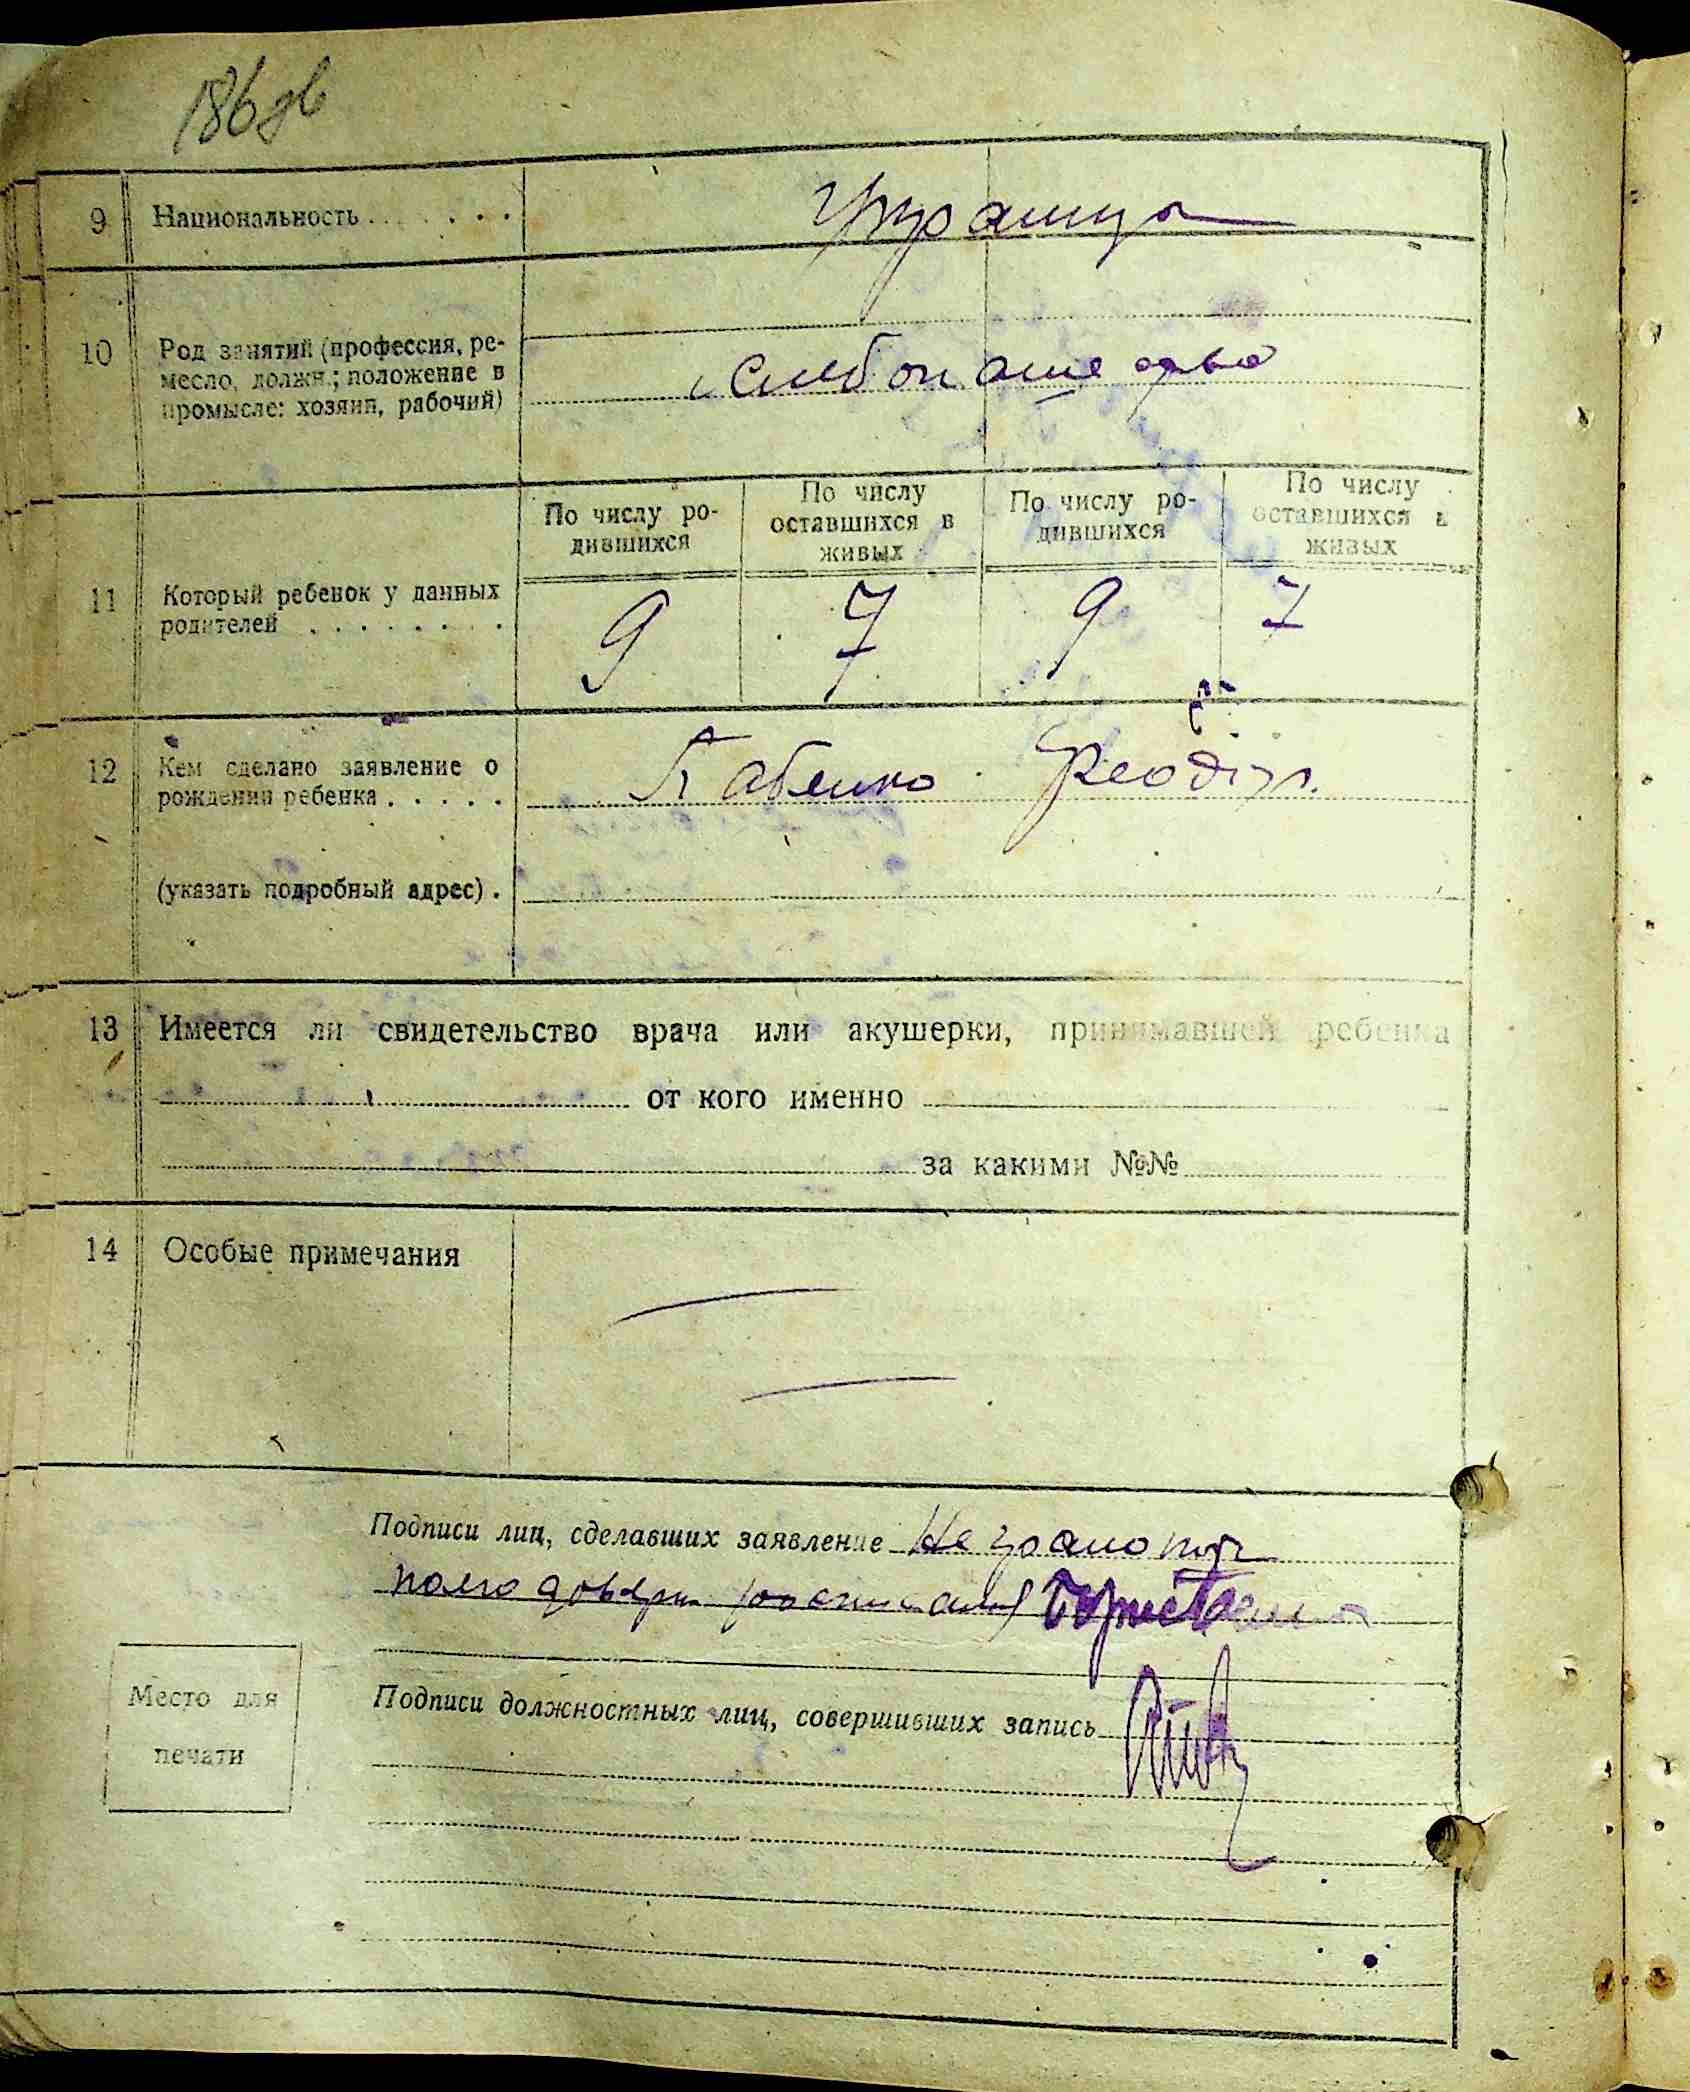 186 об
9 Национальность . . . . . . .
10 Род занятий (профессия, ре-
месло, должн.; положение в
промысле: хозяин, рабочий)
хлебопашество
По числу ро-
дившихся
По числу
оставшихся в
живых
По числу ро-
дившихся
По числу
оставшихся в
живых
11 Который ребенок у данных
родителей . . . . . . . .
9 7 9 7
12 Кем сделано заявление о
рождении ребенка . . . . .
(указать подробный адрес) .
13 Имеется ли свидетельство врача или акушерки, принимавшей ребенка
от кого именно
за какими №№
14 Особые примечания
Подписи лиц, сделавших заявление Не грамотн
Место для
печати
Подписи должностных лиц, совершивших запись